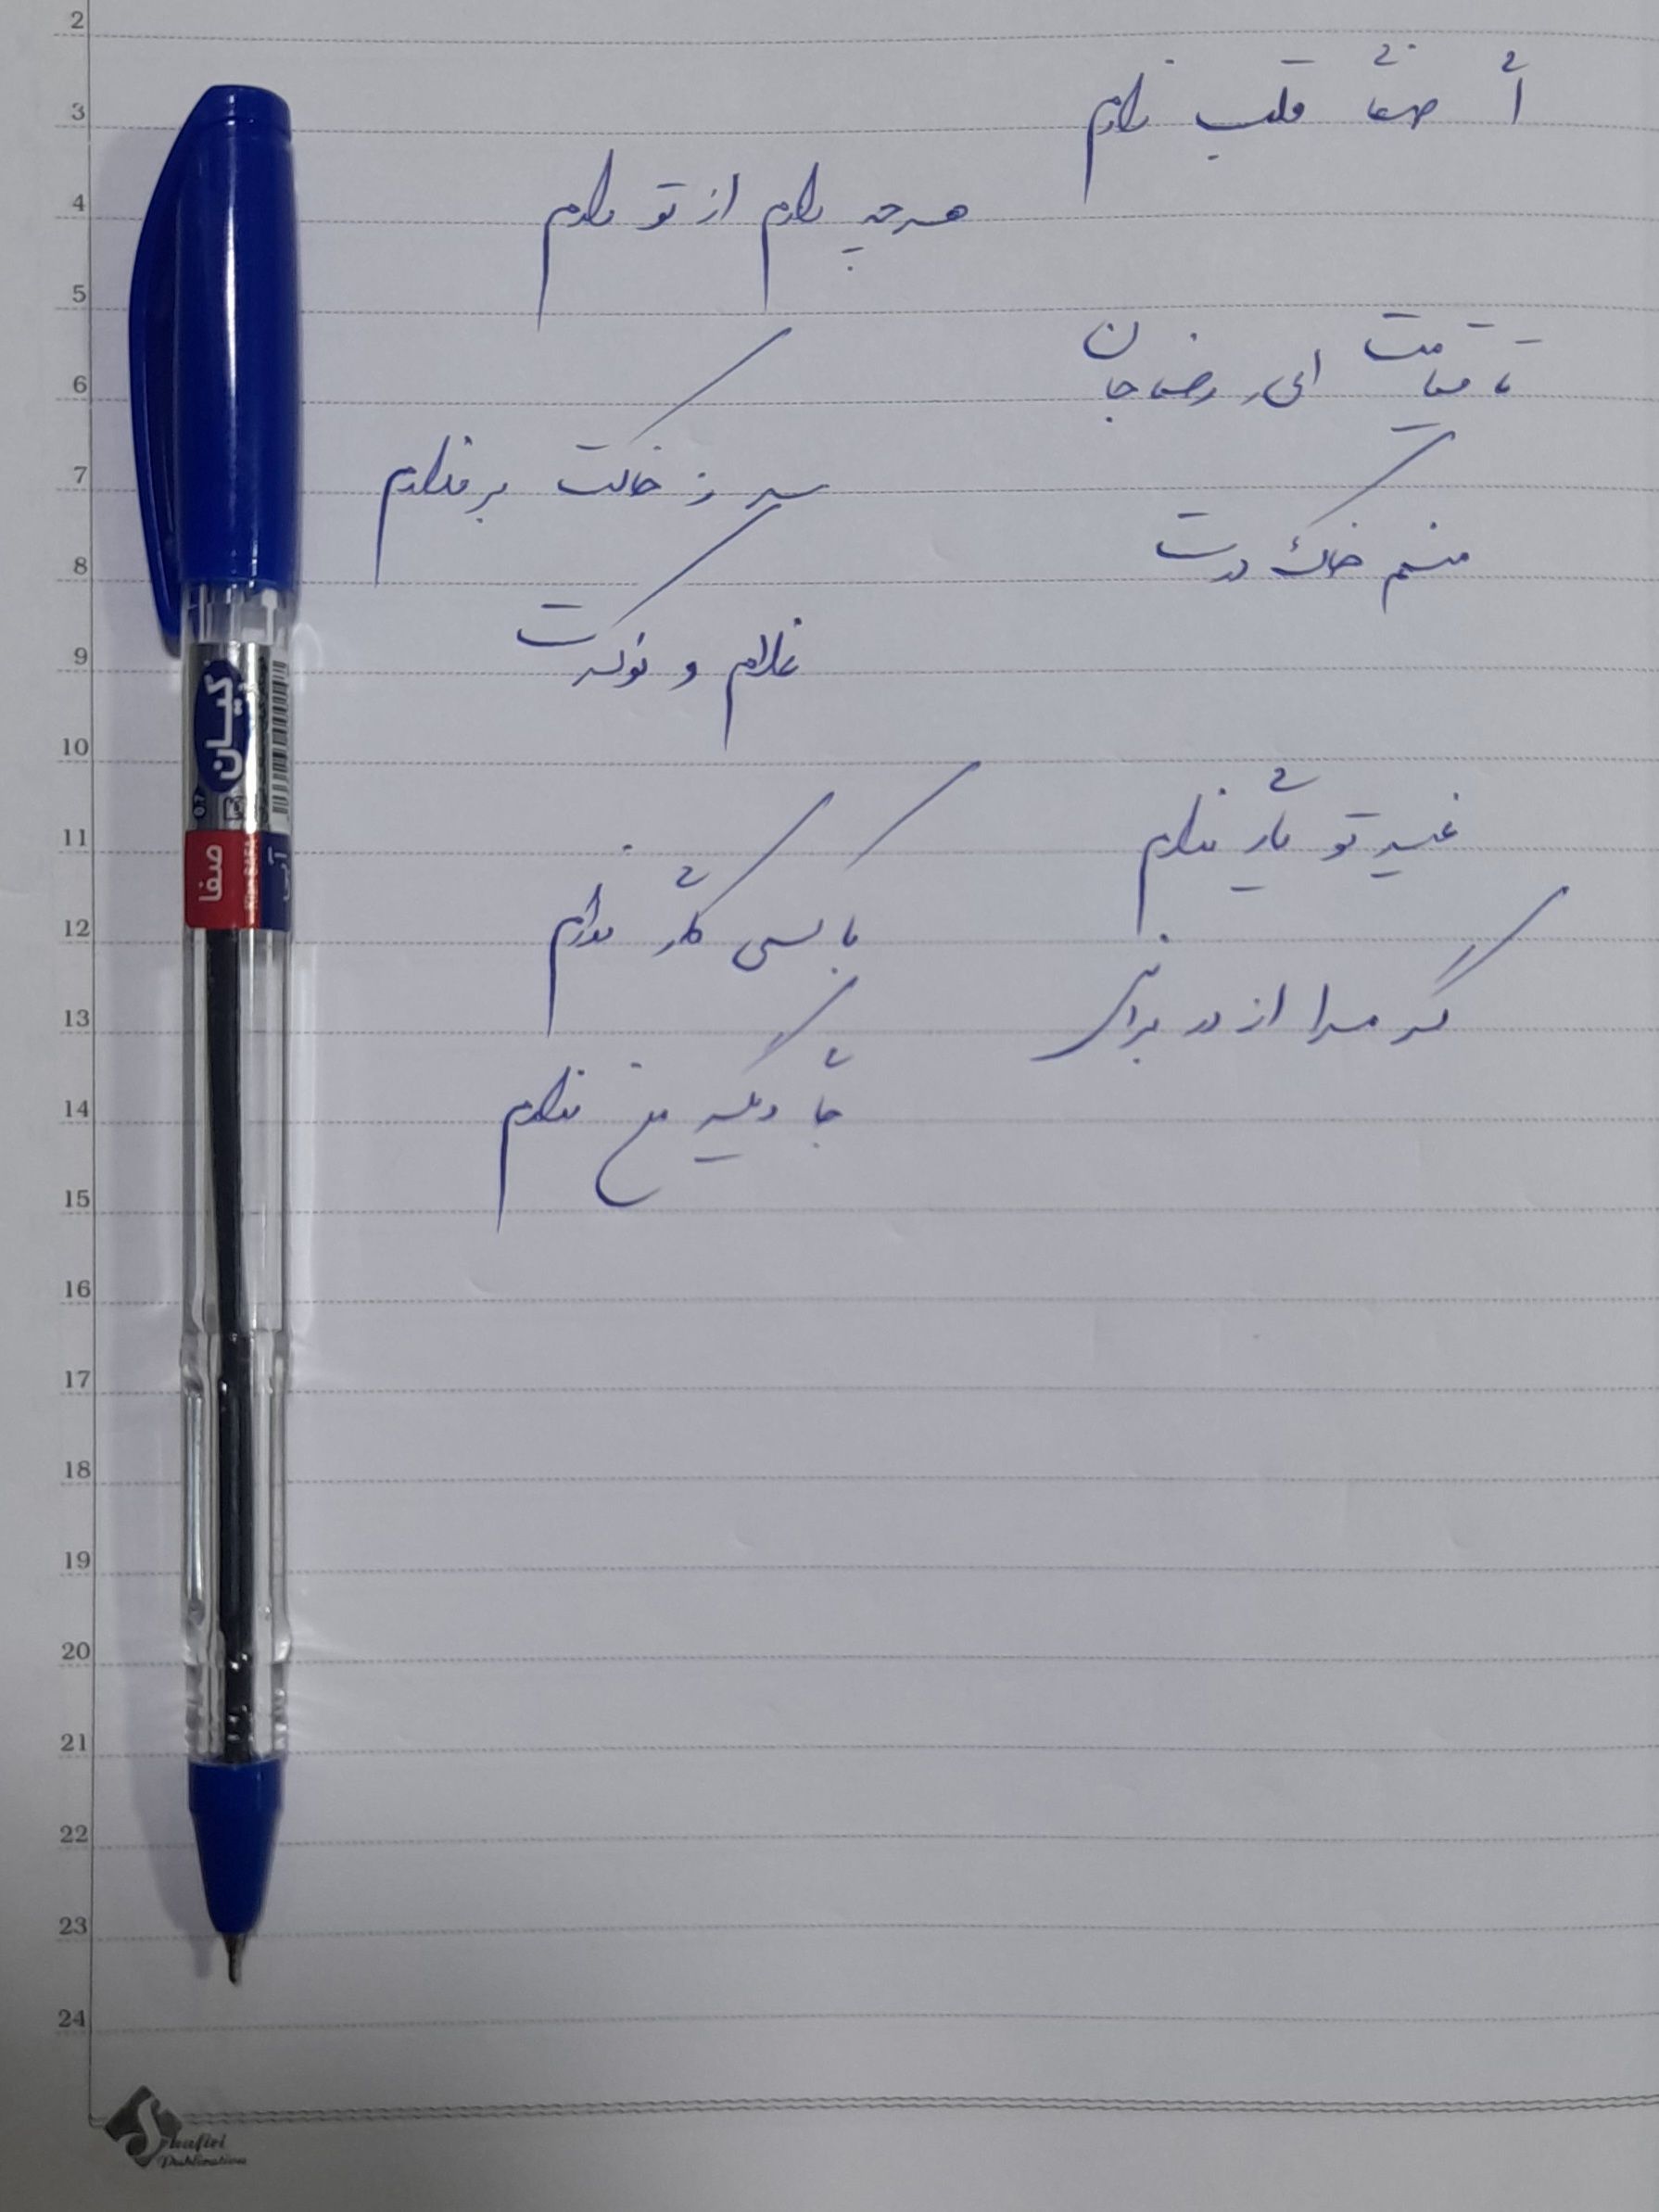 2
3
4
5
6
7
8
9
10
11
12
13
14
15
16
17
18
19
20
21
22
23
24
ای صفای قلب زارم
هرچه دارم از تو دارم
تا قیامت ای رضا جان
سر ز خاکت بر ندارم
منم خاک درت
غلام و نوکرت
غیر تو یاری ندارم
با کسی کاری ندارم
گر مرا از در برانی
جای دیگر من ندارم
کیان
0.7
صفا
آبی
Shafiei
Publication